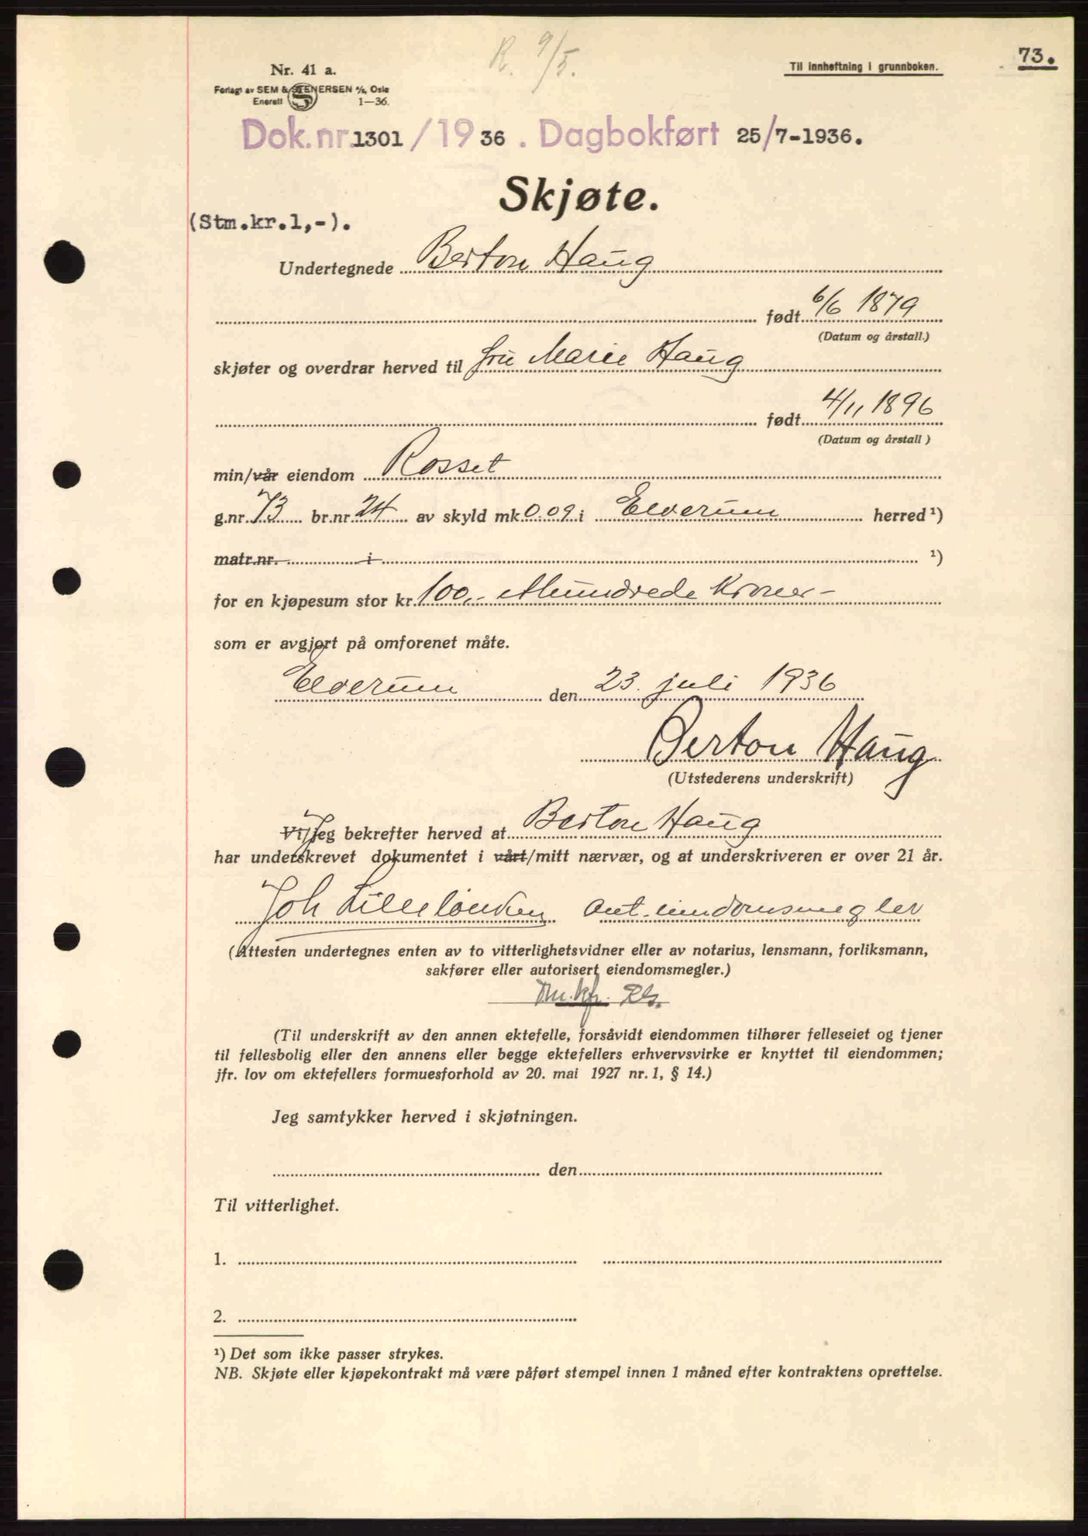 R. 9/5.
Til innheftning i grunnboken.
73.
Nr. 41 a.
Forlagt av SEM & STENERSEN A/S, Oslo
Enerett 1—36.
Dok.nr.1301/1936. Dagbokført 25/7-1936.
Skjøte.
(Stm.kr.1,-).
Undertegnede Berton Haug
født 6/6 1879
(Datum og årstall.)
skjøter og overdrar herved til fru Marie Haug
født 4/11 1896
(Datum og årstall )
min/vår eiendom Rosset
g.nr. 73 br.nr 24 av skyld mk. 0.09 i Elverum herred ¹)
matr.nr. i ¹)
for en kjøpesum stor kr. 100,- Ethundrede Kroner -
som er avgjort på omforenet måte.
Elverum den 23. juli 1936
Berton Haug
(Utstederens underskrift)
Vi/Jeg bekrefter herved at Berton Haug
har underskrevet dokumentet i vårt/mitt nærvær, og at underskriveren er over 21 år.
Joh Lilleløkken aut. eiendomsmegler
(Attesten undertegnes enten av to vitterlighetsvidner eller av notarius, lensmann, forliksmann,
sakfører eller autorisert eiendomsmegler.)
(Til underskrift av den annen ektefelle, forsåvidt eiendommen tilhører felleseiet og tjener
til fellesbolig eller den annens eller begge ektefellers erhvervsvirke er knyttet til eiendommen;
jfr. lov om ektefellers formuesforhold av 20. mai 1927 nr. 1, § 14.)
Jeg samtykker herved i skjøtningen.
den
Til vitterlighet.
1.
2.
¹) Det som ikke passer strykes.
NB. Skjøte eller kjøpekontrakt må være påført stempel innen 1 måned efter kontraktens oprettelse.